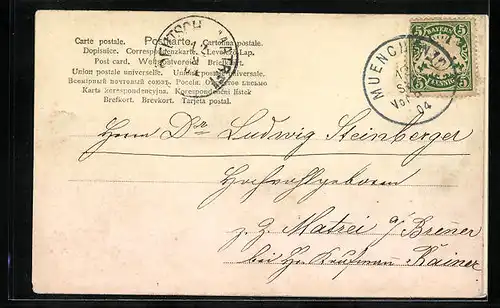 Carte postale. Postkarte. Cartolina postale.
Dopisnice. Correspondenzkarte. Levelező Lap.
Post card. Weltpostverein. Briefkort.
Union postale universelle. Unione postale universale.
Всемірный почтовый союзъ. Россія. Открытое письмо
Karta korespondencyjna. Korespondenční lístek
Brefkort. Brevkort. Tarjeta postal.
5 BAYERN 5
5 PFENNIG 5
MUENCHEN
Vor
04
Herrn Dr Ludwig Steinberger
Hochwohlgeboren
z. Z. Matrei a/Brenner
bei Hr. Kaufmann Kainer